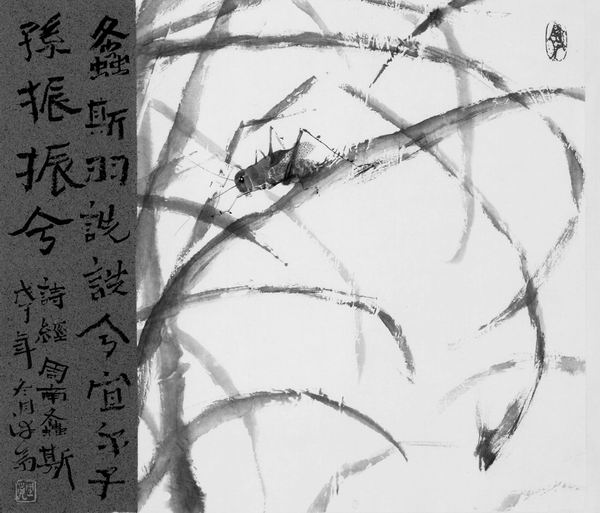 螽斯羽詵詵兮宜尔子
孫振振兮
詩經周南螽斯
戊子年